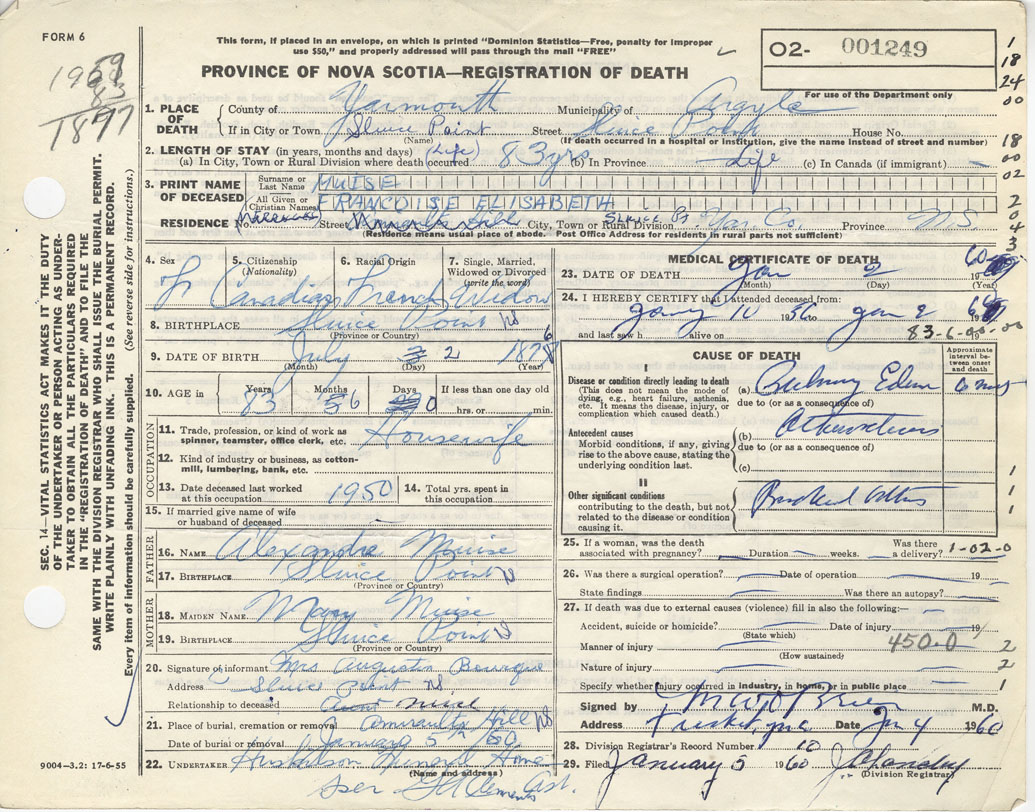 FORM 6
This form, if placed in an envelope, on which is printed "Dominion Statistics—Free, penalty for improper
use $50," and properly addressed will pass through the mail "FREE"
O2- 001249
For use of the Department only
PROVINCE OF NOVA SCOTIA—REGISTRATION OF DEATH
1959
83
1877
1
18
24
00
18
00
02
2
0
4
3
SEC. 14—VITAL STATISTICS ACT MAKES IT THE DUTY
OF THE UNDERTAKER OR PERSON ACTING AS UNDER-
TAKER TO OBTAIN ALL THE PARTICULARS REQUIRED
IN THE "REGISTRATION OF DEATH" AND TO FILE THE
SAME WITH THE DIVISION REGISTRAR WHO SHALL ISSUE THE BURIAL PERMIT.
WRITE PLAINLY WITH UNFADING INK. THIS IS A PERMANENT RECORD.
Every item of information should be carefully supplied. (See reverse side for instructions.)
1. PLACE OF DEATH County of Yarmouth Municipality of Argyle
If in City or Town Sluice Point Street Sluice Point House No.
(Name) (If death occurred in a hospital or Institution, give the name instead of street and number)
2. LENGTH OF STAY (in years, months and days) (Life)
(a) In City, Town or Rural Division where death occurred 83 yrs (b) In Province Life (c) In Canada (if immigrant) —
3. PRINT NAME OF DECEASED Surname or Last Name MUISE
All Given or Christian Names FRANCOISE ELISABETH
RESIDENCE No. Street Amiraults Hill City, Town or Rural Division Sluice Pt Yar. Co. Province N.S
(Residence means usual place of abode. Post Office Address for residents in rural parts not sufficient)
4. Sex 5. Citizenship (Nationality) 6. Racial Origin 7. Single, Married, Widowed or Divorced (write the word)
F Canadian French Widow
8. BIRTHPLACE Sluice Point NS
(Province or Country)
9. DATE OF BIRTH July 2 1876
(Month) (Day) (Year)
10. AGE in Years Months Days If less than one day old
83 6 0 hrs. or min.
OCCUPATION
11. Trade, profession, or kind of work as spinner, teamster, office clerk, etc. Housewife
12. Kind of industry or business, as cotton-mill, lumbering, bank, etc.
13. Date deceased last worked at this occupation 1950 14. Total yrs. spent in this occupation
15. If married give name of wife or husband of deceased
FATHER
16. NAME Alexandre Muise
17. BIRTHPLACE Sluice Point NS
(Province or Country)
MOTHER
18. MAIDEN NAME Mary Muise
19. BIRTHPLACE Sluice Point NS
(Province or Country)
20. Signature of informant Mrs Augustin Bourque
Address Sluice Point NS
Relationship to deceased Niece
21. Place of burial, cremation or removal Amiraults Hill NS
Date of burial or removal January 5 1960
22. UNDERTAKER Huskilson Funeral Home
(Name and address)
9004—3.2: 17-6-55
MEDICAL CERTIFICATE OF DEATH
23. DATE OF DEATH Jan 2 1960
(Month) (Day) (Year)
24. I HEREBY CERTIFY that I attended deceased from:
Jany 10 19 to Jan 2 1960
and last saw h alive on 19
83-6-00-00
CAUSE OF DEATH
Approximate interval between onset and death
I
Disease or condition directly leading to death
(This does not mean the mode of dying, e.g., heart failure, asthenia, etc. It means the disease, injury, or complication which caused death.)
(a)
due to (or as a consequence of)
Antecedent causes
Morbid conditions, if any, giving rise to the above cause, stating the underlying condition last.
(b)
due to (or as a consequence of)
(c)
II
Other significant conditions
contributing to the death, but not related to the disease or condition causing it.
1
1
1
25. If a woman, was the death associated with pregnancy? — Duration — weeks. Was there a delivery? 1-02-0
26. Was there a surgical operation? — Date of operation — 19
State findings Was there an autopsy? —
27. If death was due to external causes (violence) fill in also the following:—
Accident, suicide or homicide? Date of injury 19
(State which)
Manner of injury 450-0 2
(How sustained)
Nature of injury 2
Specify whether injury occurred in industry, in home, or in public place 1
Signed by M.D.
Address Tusket, N.S. Date Jan 4 1960
28. Division Registrar's Record Number
29. Filed January 5 1960
(Division Registrar)